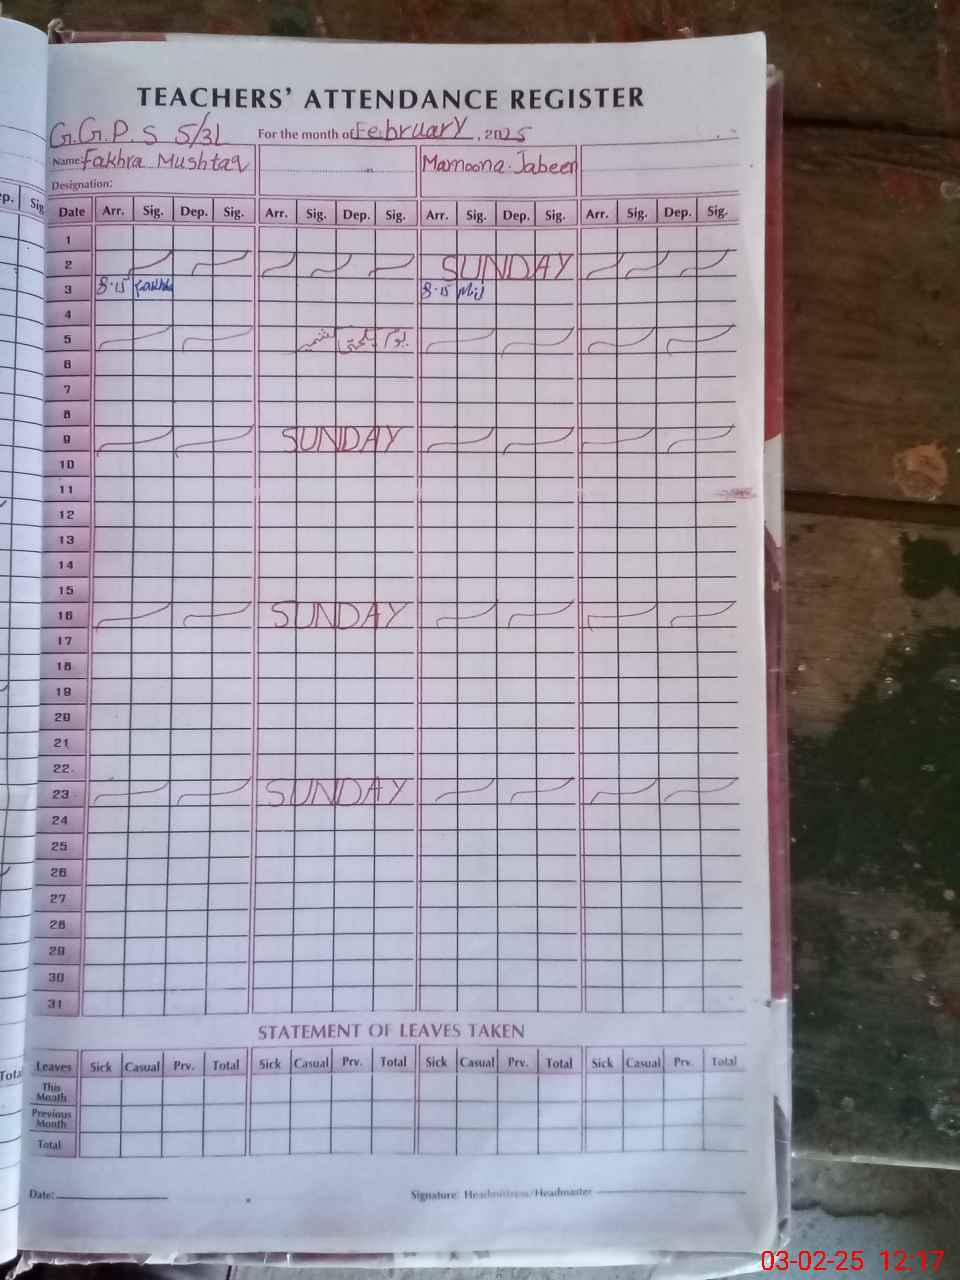 TEACHERS' ATTENDANCE REGISTER
G.G.P.S 5/3L For the month of February, 2025
Name: Fakhra Mushtaq Mamoona Jabeen
Designation:
Date Arr. Sig. Dep. Sig. Arr. Sig. Dep. Sig. Arr. Sig. Dep. Sig. Arr. Sig. Dep. Sig.
1
2 SUNDAY
3 8.15 8.15
4
5 یوم یکجہتی کشمیر
6
7
8
9 SUNDAY
10
11
12
13
14
15
16 SUNDAY
17
18
19
20
21
22
23 SUNDAY
24
25
26
27
28
29
30
31
STATEMENT OF LEAVES TAKEN
Leaves Sick Casual Prv. Total Sick Casual Prv. Total Sick Casual Prv. Total Sick Casual Prv. Total
This Month
Previous Month
Total
Date: Signature: Headmistress/Headmaster
ep. Sig
Total
03-02-25 12:17